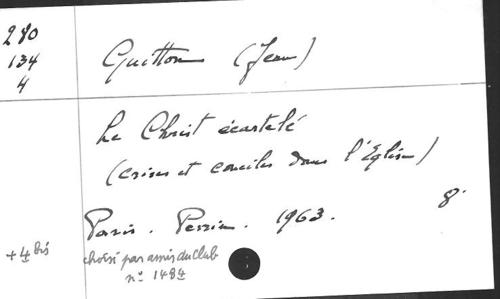 280
134
4
Guitton (Jean)
Le Christ écartelé
(crises et conciles dans l'Eglise)
Paris. Perrin. 1963. 8°
+ 4 bis
choisi par amis du Club
n° 1484